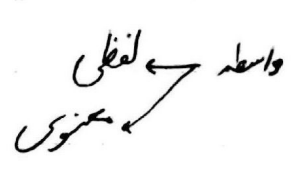 واسطه لفظی
معنوی